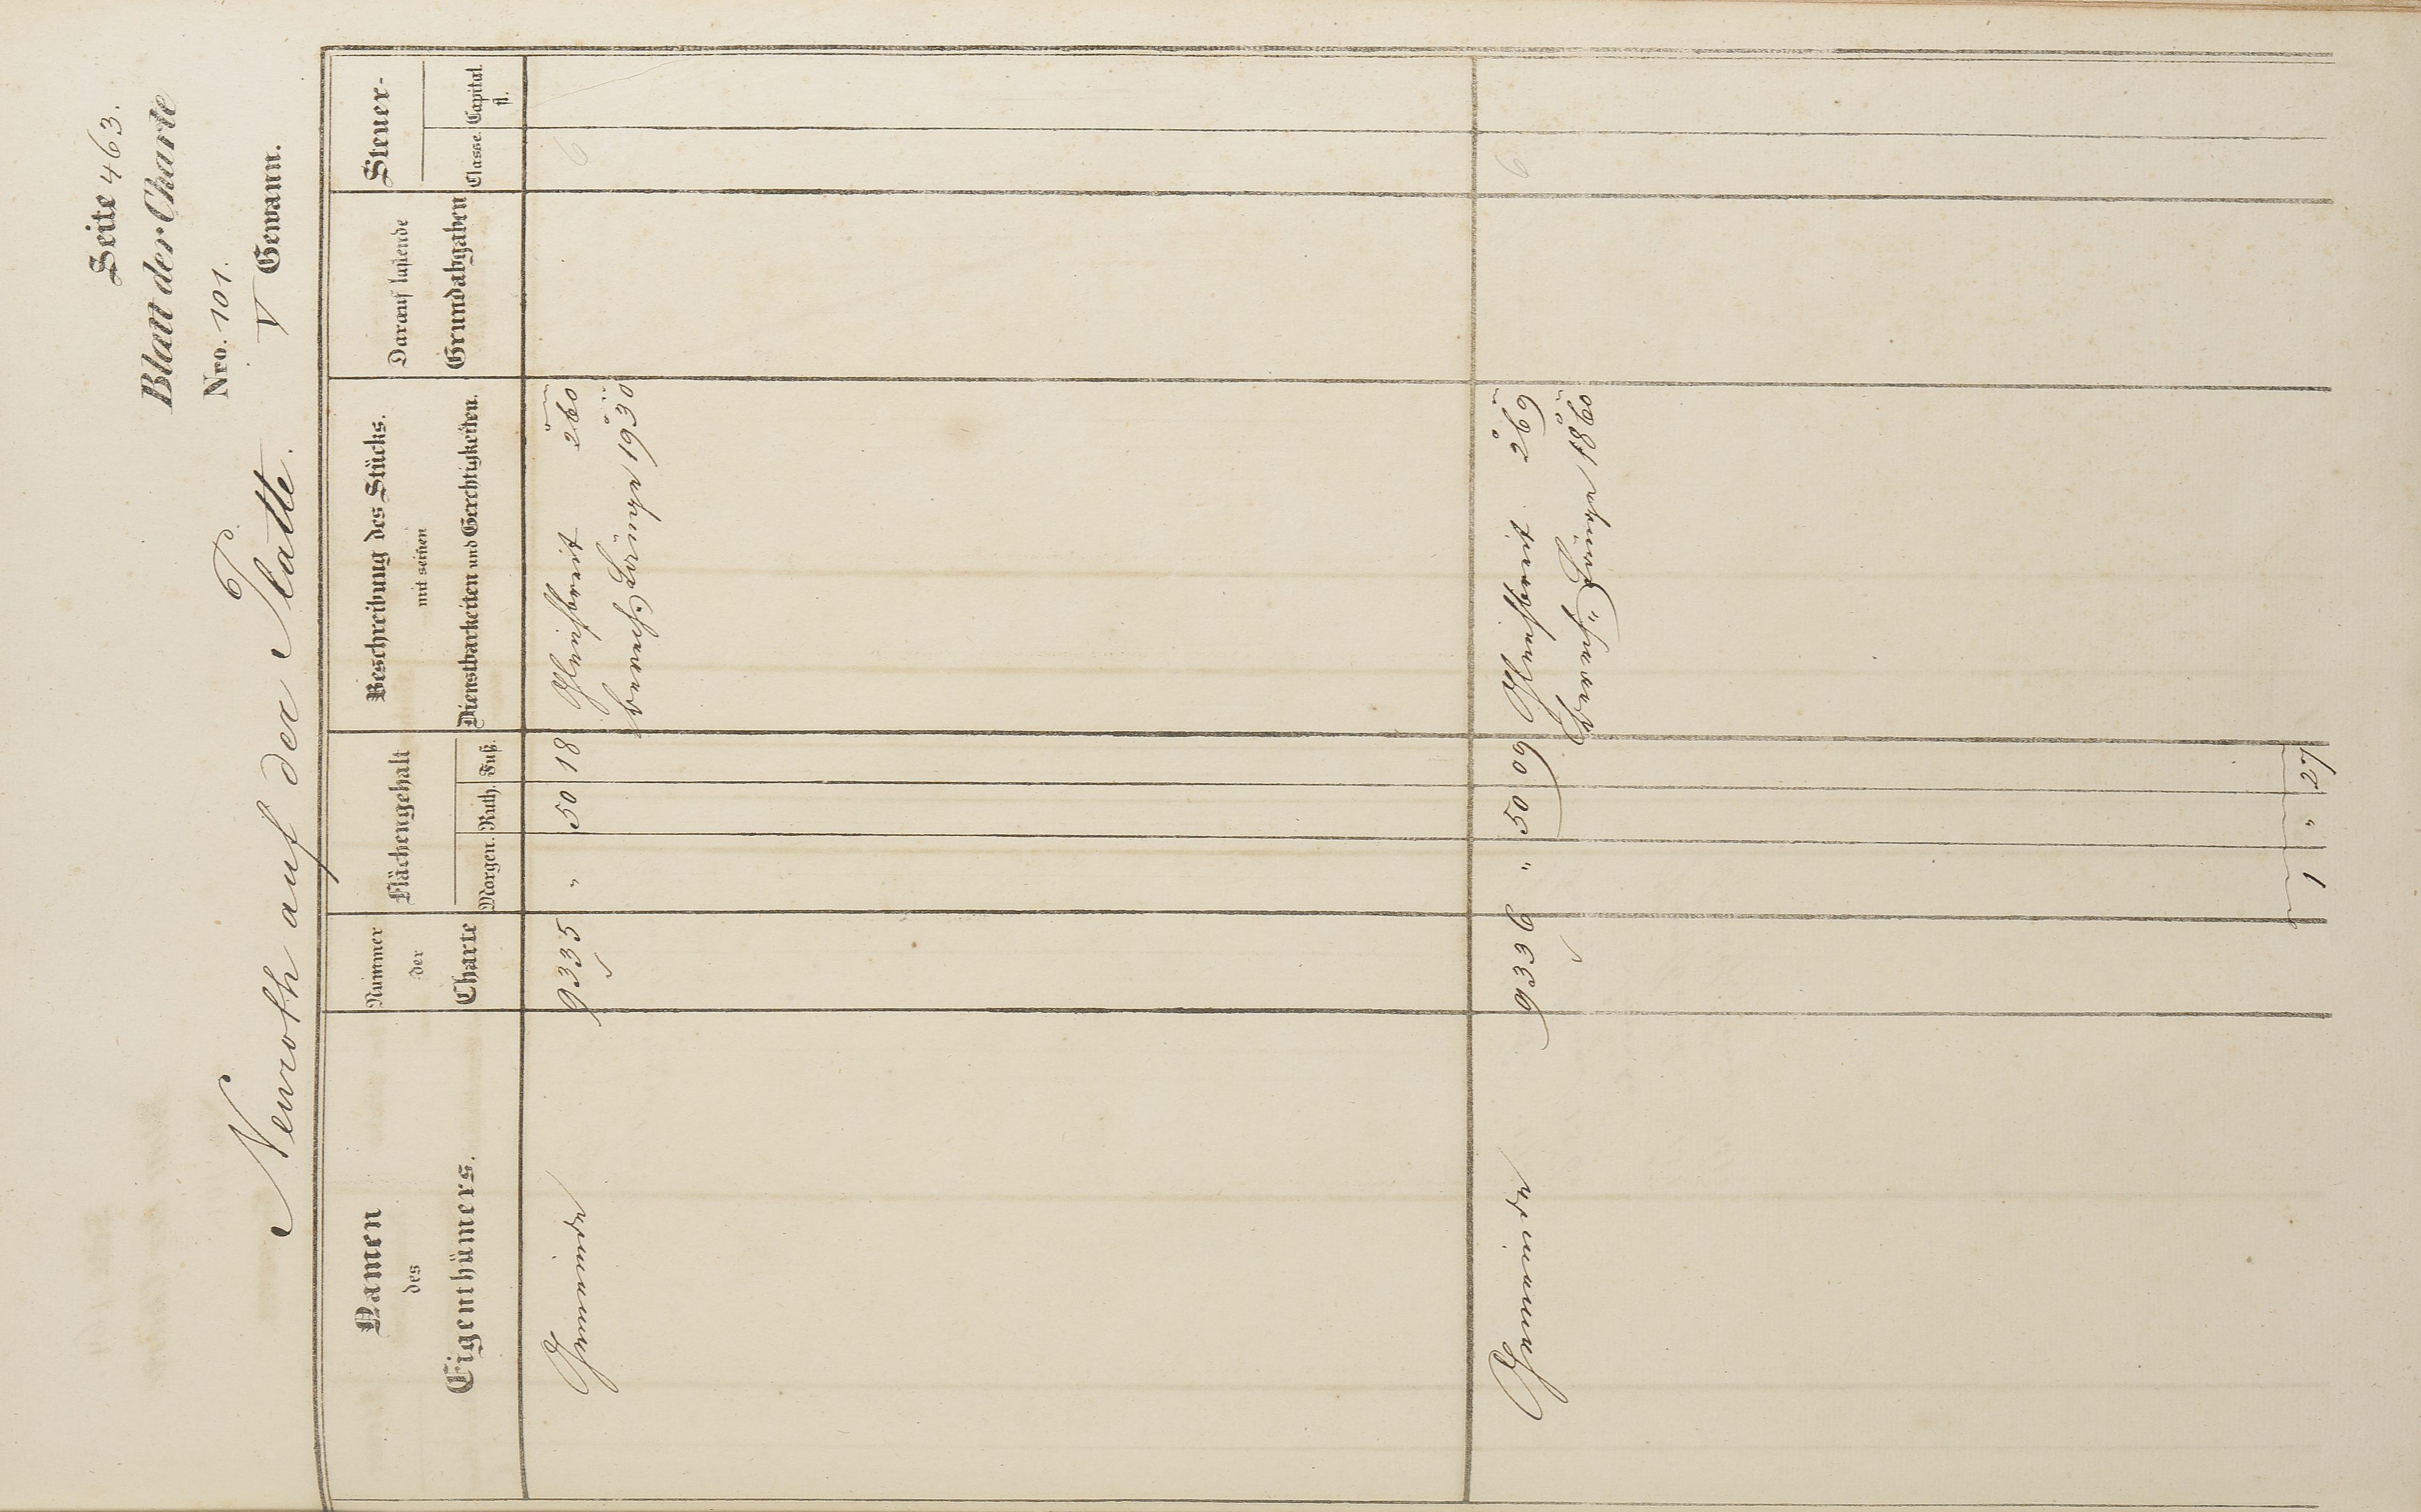 Seite 463.
Blatt der Charte
Nro. 101.
V Gewann.
Neuroth auf der Platte.
Namen
des
Eigenthümers.
Nummer
der
Charte
Flächengehalt
Morgen. Ruth. Fuß.
Beschreibung des Stücks.
mit seinen
Dienstbarkeiten und Gerechtigkeiten.
Darauf lastende
Grundabgaben
Steuer-
Classe. Capital
fl.
Gemeinde 9335 " 50 18 260 6
1930
Gemeinde 9336 " 50 09 269 6
1860
1 " 27